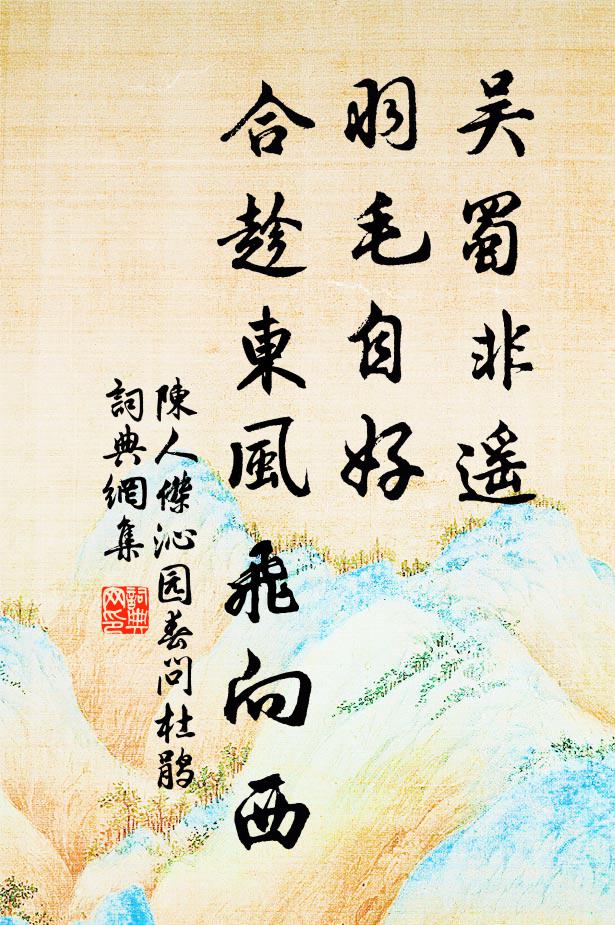 吴蜀非遥
羽毛自好
合趁東風飛向西
陳人傑沁园春问杜鹃
詞典網集
詞典网印